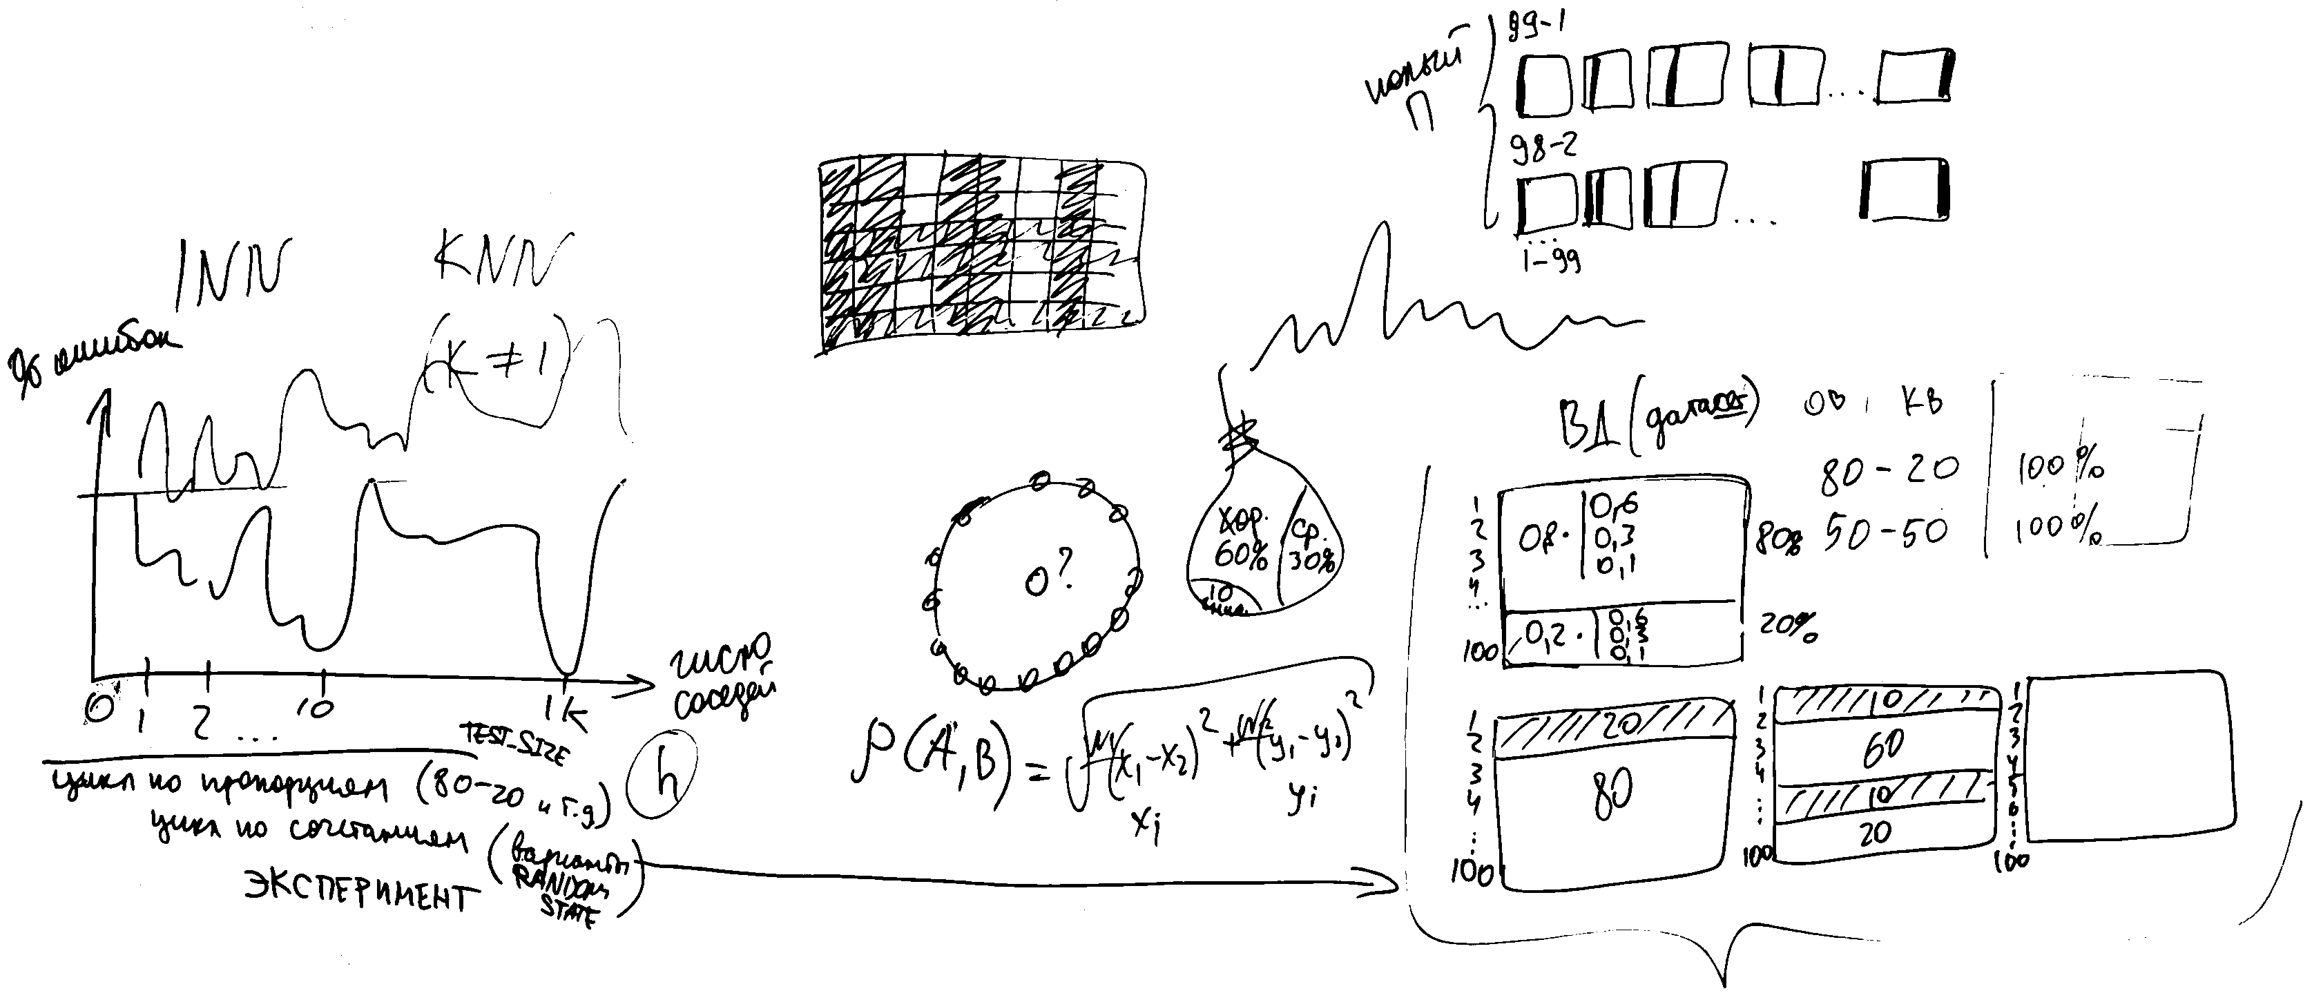 1NN
KNN
(K ≠ 1)
% ошибок
0
1
2
...
10
1K
число
соседей
TEST_SIZE
цикл по пропорциям (80-20 и т.д)
h
цикл по сочетаниям
(варианты
RANDOM
STATE)
ЭКСПЕРИМЕНТ
0?
хор.
60%
ср.
30%
10
полный
П
99-1
...
98-2
...
...
1-99
ВД (датасет)
ОВ
КВ
80-20
100%
50-50
100%
1
2
3
4
...
100
0,8·
0,6
0,3
0,1
80%
0,2·
0,6
0,3
0,1
20%
1
2
3
4
100
20
80
1
2
3
4
100
10
60
10
20
1
2
3
4
5
6
100